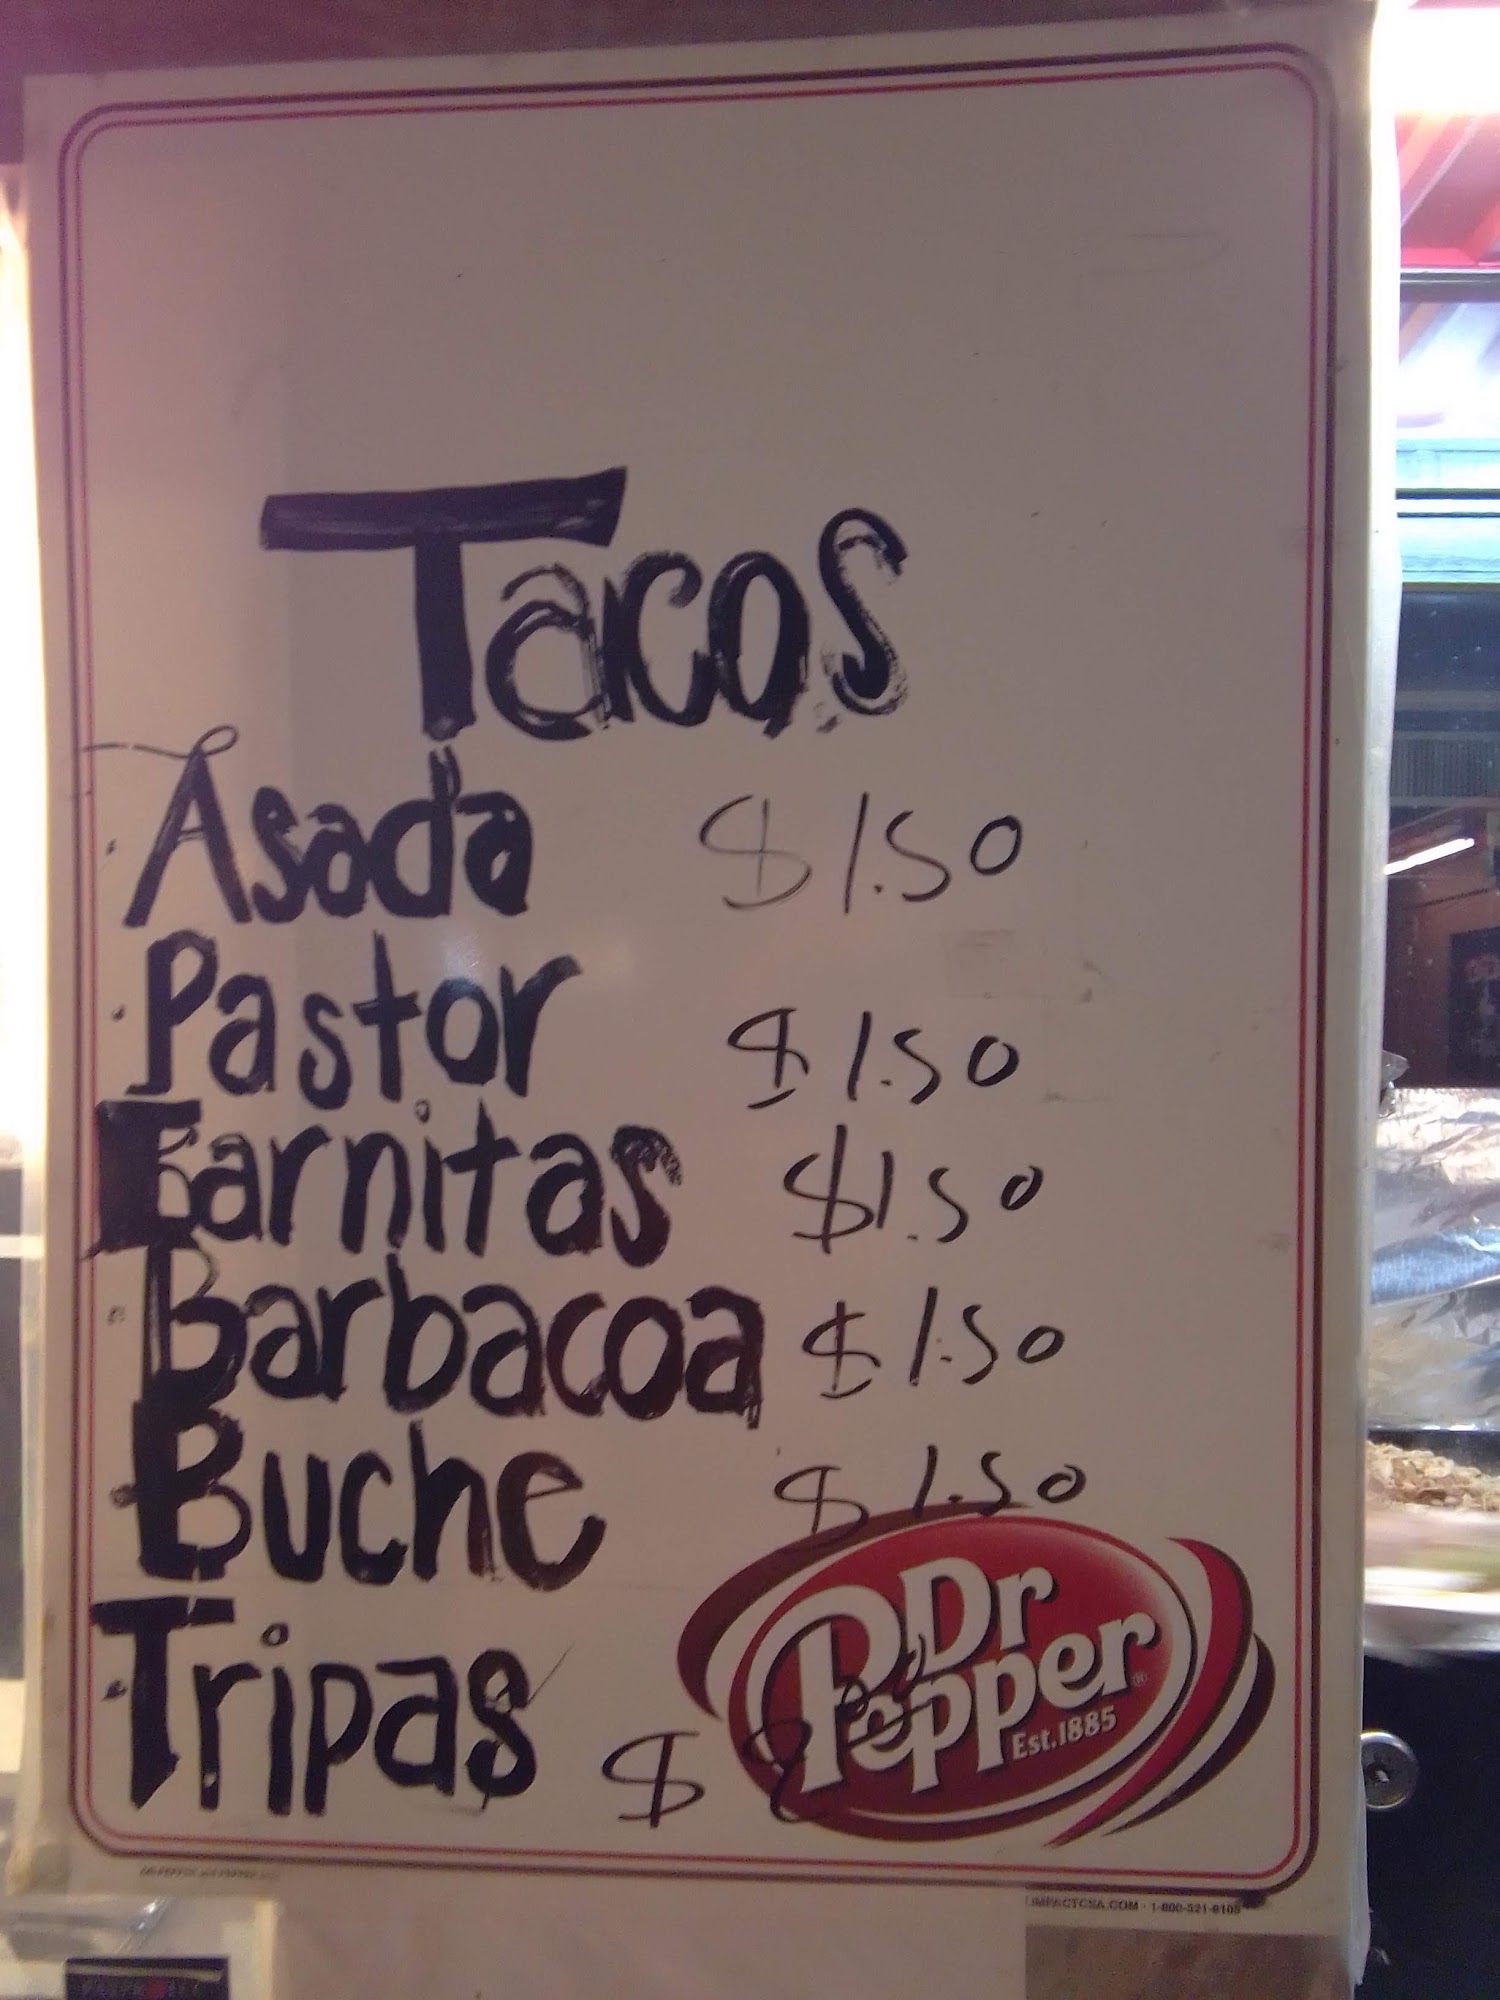 Tacos
Asada $1.50
Pastor $1.50
Carnitas $1.50
Barbacoa $1.50
Buche $1.50
Tripas $
Dr
Pepper
Est.1885
IMPACTCSA.COM · 1-800-321-6105